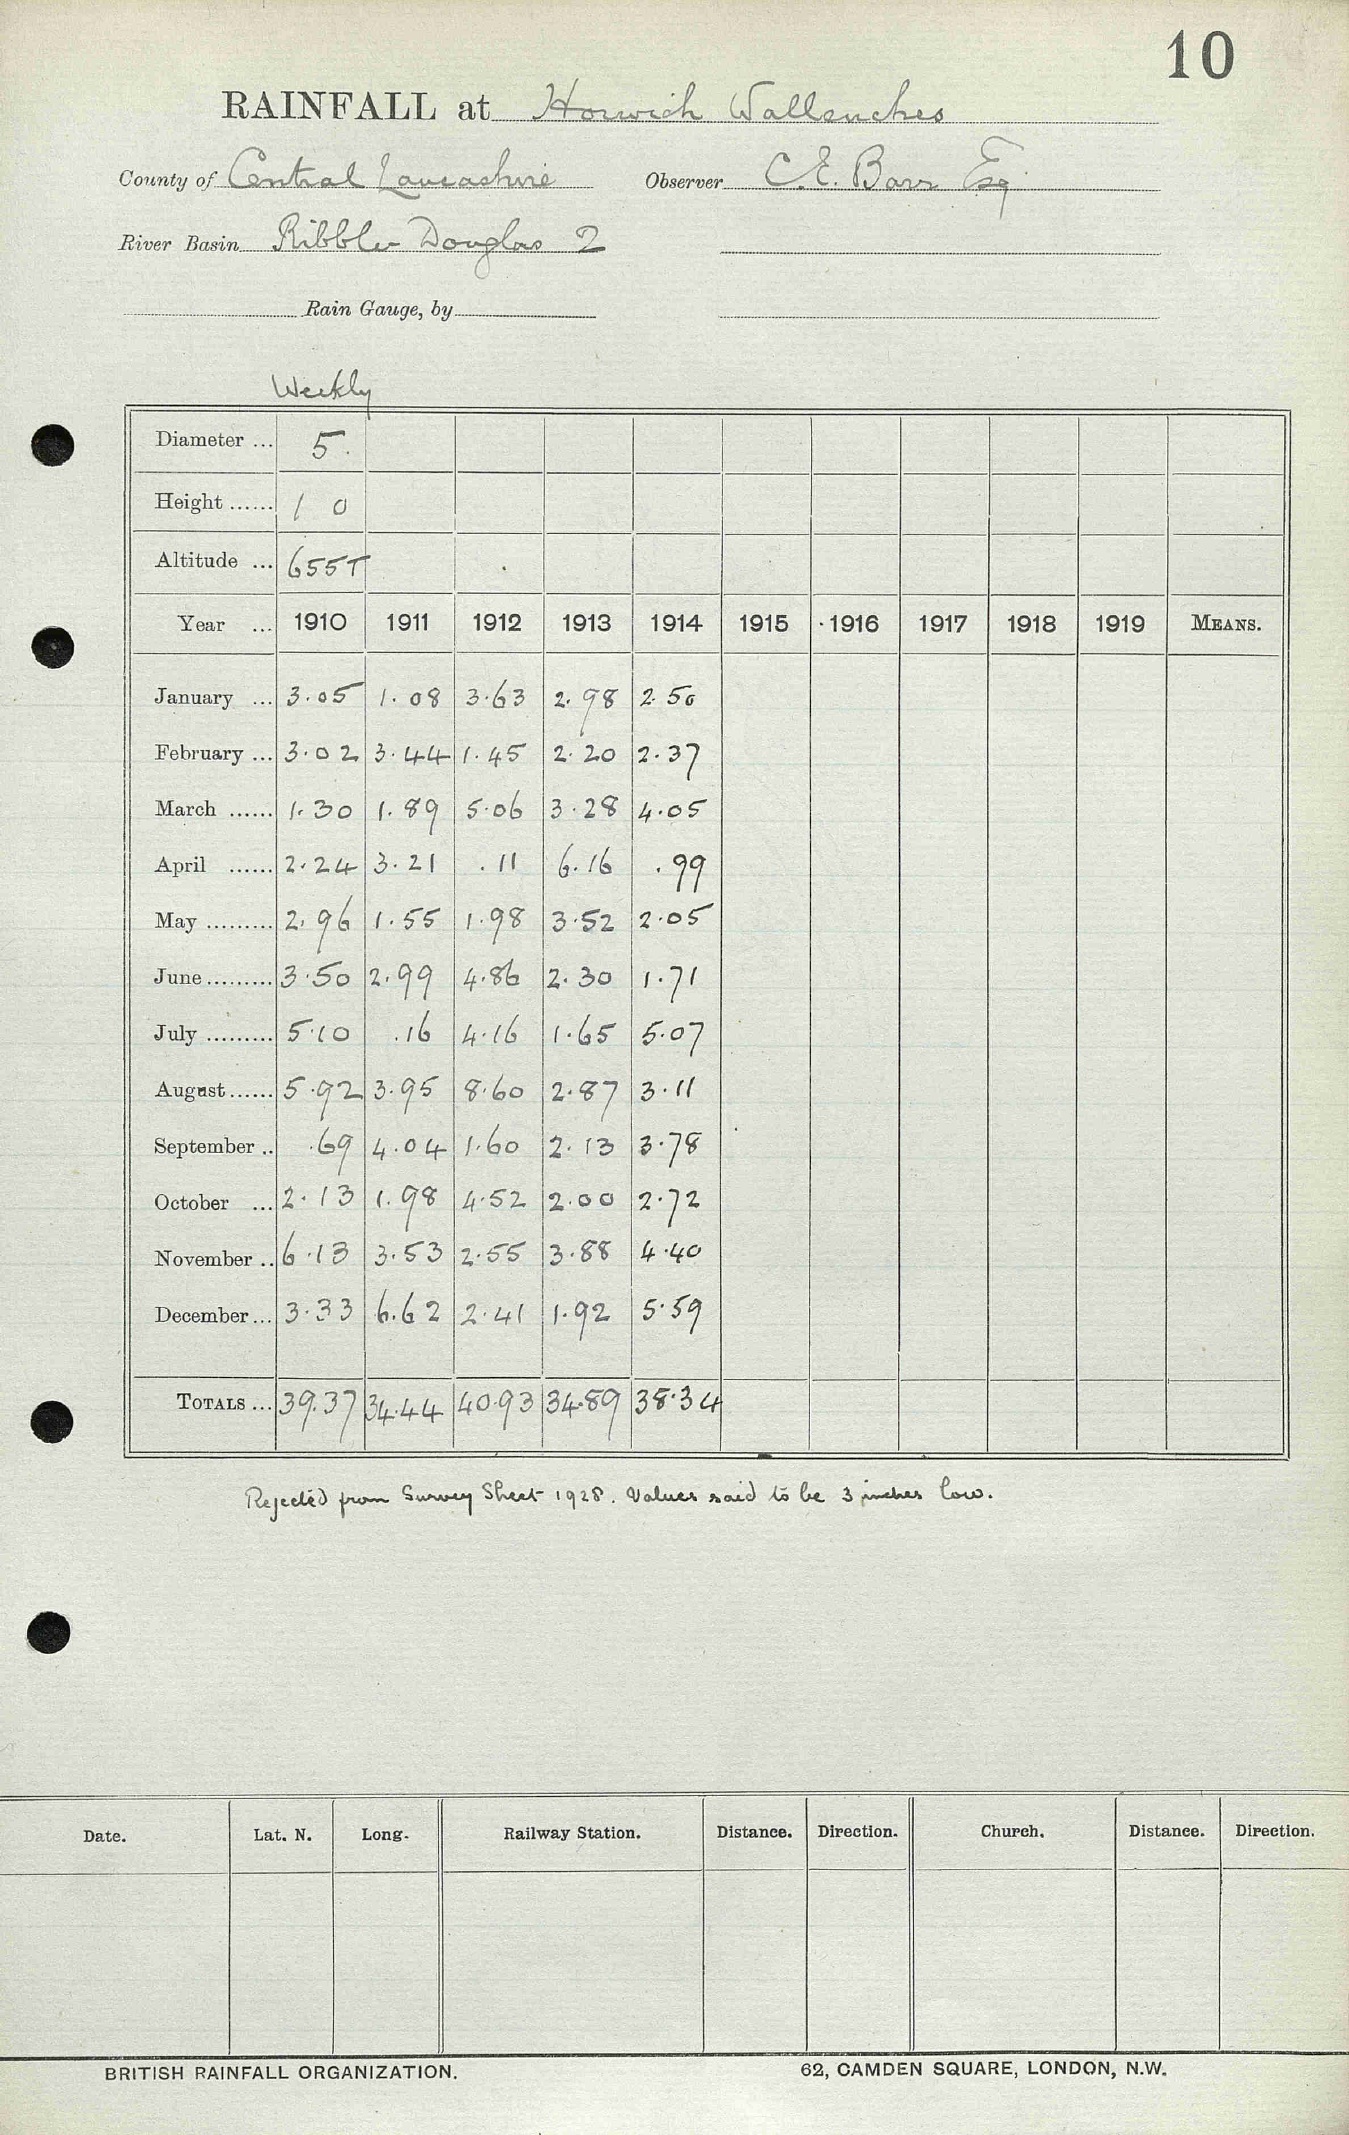 10
RAINFALL at Horwich Wallsuches
County of Central Lancashire Observer C.E. Barr Esq
River Basin Ribble Douglas 2
Rain Gauge, by
Weekly
Diameter ... 5.
Height ...... 1 0
Altitude ... 655T
Year ... 1910 1911 1912 1913 1914 1915 1916 1917 1918 1919 MEANS.
January ... 3.05 1.08 3.63 2.98 2.50
February ... 3.02 3.44 1.45 2.20 2.37
March ...... 1.30 1.89 5.06 3.28 4.05
April ...... 2.24 3.21 .11 6.16 .99
May ......... 2.96 1.55 1.98 3.52 2.05
June ......... 3.50 2.99 4.86 2.30 1.71
July ......... 5.10 .16 4.16 1.65 5.07
August ...... 5.92 3.95 8.60 2.87 3.11
September .. .69 4.04 1.60 2.13 3.78
October ... 2.13 1.98 4.52 2.00 2.72
November .. 6.13 3.53 2.55 3.88 4.40
December ... 3.33 6.62 2.41 1.92 5.59
TOTALS ... 39.37 34.44 40.93 34.89 38.34
Rejected from Survey Sheet 1928. Values said to be 3 inches low.
Date. Lat. N. Long. Railway Station. Distance. Direction. Church. Distance. Direction.
BRITISH RAINFALL ORGANIZATION. 62, CAMDEN SQUARE, LONDON, N.W.